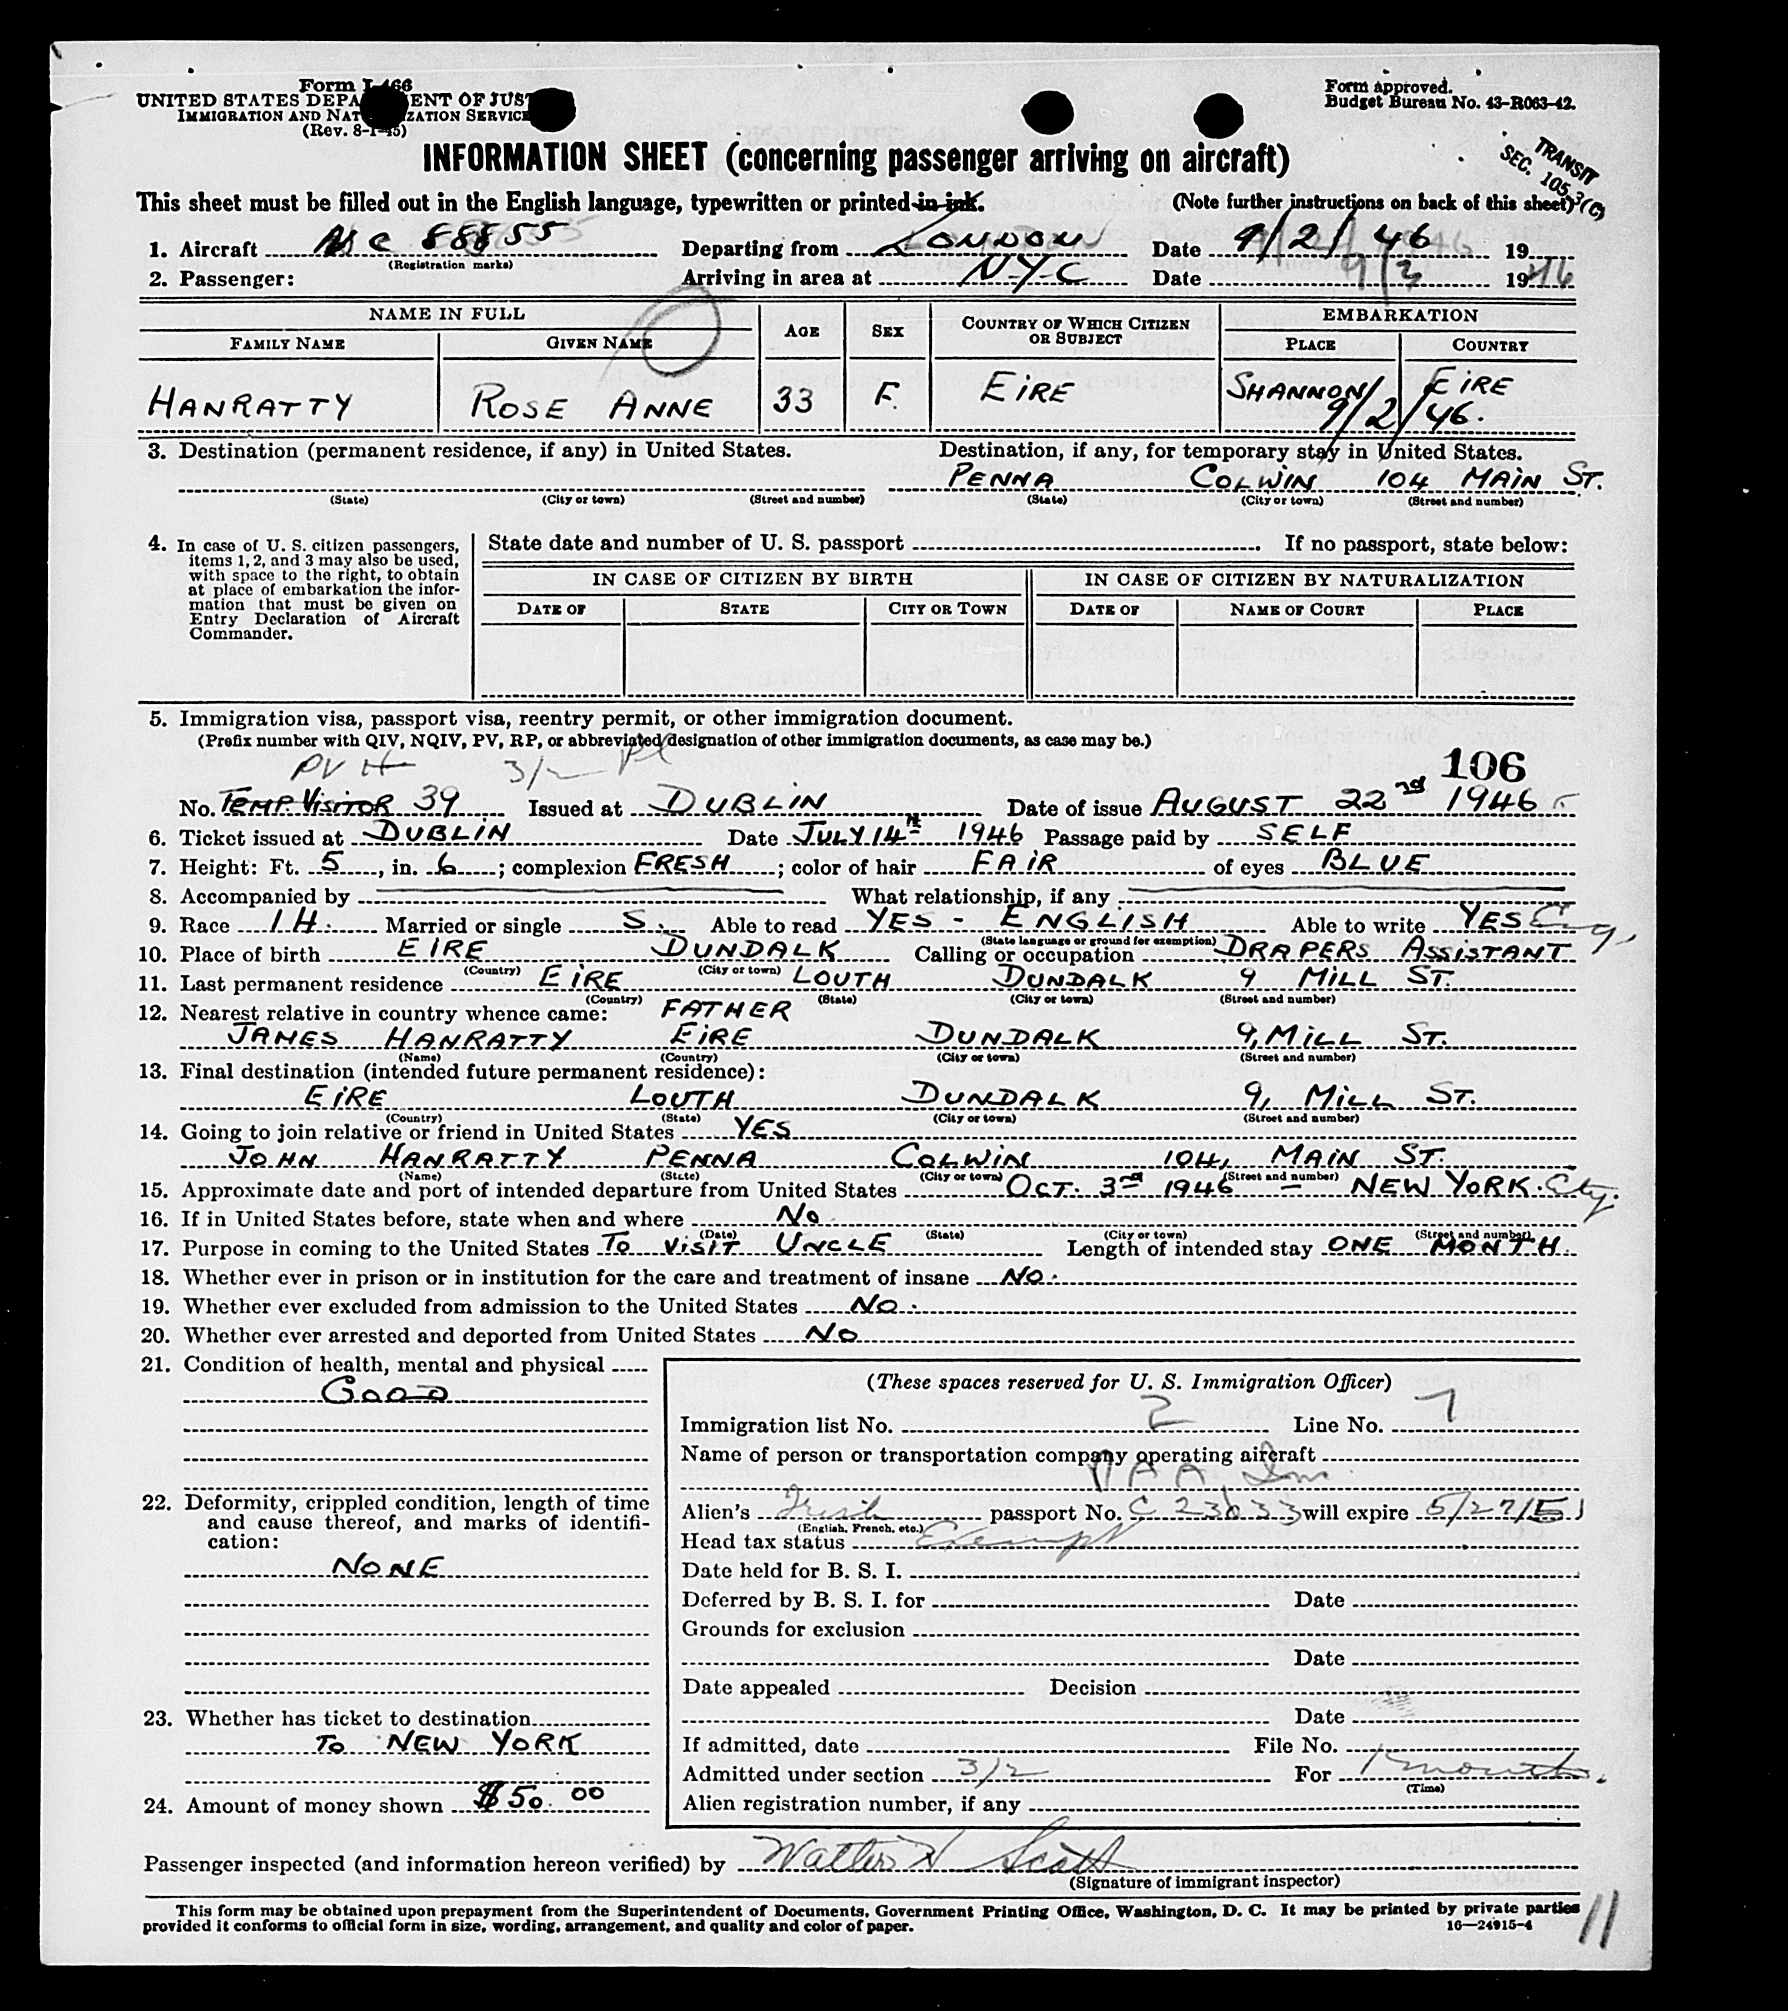 Form I-466
UNITED STATES DEPA ENT OF JUST
IMMIGRATION AND NAT ZATION SERVICE
(Rev. 8-1-45)
Form approved.
Budget Bureau No. 43-R063-42.
TRANSIT
SEC. 105.3(C)
INFORMATION SHEET (concerning passenger arriving on aircraft)
This sheet must be filled out in the English language, typewritten or printed in ink. (Note further instructions on back of this sheet)
1. Aircraft NC 88855 Departing from LONDON Date 9/2/46 19
(Registration marks)
2. Passenger: Arriving in area at N-Y-C Date 9/3 1946
NAME IN FULL AGE SEX COUNTRY OF WHICH CITIZEN OR SUBJECT EMBARKATION
FAMILY NAME GIVEN NAME PLACE COUNTRY
HANRATTY ROSE ANNE 33 F. EIRE SHANNON EIRE
9/2/46.
3. Destination (permanent residence, if any) in United States. Destination, if any, for temporary stay in United States.
PENNA COLWIN 104 MAIN ST.
(State) (City or town) (Street and number) (State) (City or town) (Street and number)
4. In case of U. S. citizen passengers, items 1, 2, and 3 may also be used, with space to the right, to obtain at place of embarkation the information that must be given on Entry Declaration of Aircraft Commander.
State date and number of U. S. passport . If no passport, state below:
IN CASE OF CITIZEN BY BIRTH IN CASE OF CITIZEN BY NATURALIZATION
DATE OF STATE CITY OR TOWN DATE OF NAME OF COURT PLACE
5. Immigration visa, passport visa, reentry permit, or other immigration document.
(Prefix number with QIV, NQIV, PV, RP, or abbreviated designation of other immigration documents, as case may be.)
PV 3/2 106
No. TEMP. VISITOR 39 Issued at DUBLIN Date of issue AUGUST 22nd 1946
6. Ticket issued at DUBLIN Date JULY 14th 1946 Passage paid by SELF
7. Height: Ft. 5, in. 6; complexion FRESH; color of hair FAIR of eyes BLUE
8. Accompanied by What relationship, if any
9. Race IH. Married or single S. Able to read YES - ENGLISH Able to write YES Eng.
(State language or ground for exemption)
10. Place of birth EIRE DUNDALK Calling or occupation DRAPERS ASSISTANT
(Country) (City or town)
11. Last permanent residence EIRE LOUTH DUNDALK 9 MILL ST.
(Country) (State) (City or town) (Street and number)
12. Nearest relative in country whence came: FATHER
JAMES HANRATTY EIRE DUNDALK 9, MILL ST.
(Name) (Country) (City or town) (Street and number)
13. Final destination (intended future permanent residence):
EIRE LOUTH DUNDALK 9, MILL ST.
(Country) (State) (City or town) (Street and number)
14. Going to join relative or friend in United States YES
JOHN HANRATTY PENNA COLWIN 104, MAIN ST.
(Name) (State) (City or town) (Street and number)
15. Approximate date and port of intended departure from United States OCT. 3rd 1946 - NEW YORK. City.
16. If in United States before, state when and where No.
(Date) (State) (City or town) (Street and number)
17. Purpose in coming to the United States To VISIT UNCLE Length of intended stay ONE MONTH.
18. Whether ever in prison or in institution for the care and treatment of insane No.
19. Whether ever excluded from admission to the United States No.
20. Whether ever arrested and deported from United States No
21. Condition of health, mental and physical
GOOD
22. Deformity, crippled condition, length of time and cause thereof, and marks of identification:
NONE
23. Whether has ticket to destination
To NEW YORK
24. Amount of money shown $50.00
(These spaces reserved for U. S. Immigration Officer)
Immigration list No. 2 Line No. 7
Name of person or transportation company operating aircraft
PAA Inc
Alien's Irish passport No. C 23633 will expire 5/27/51
(English, French, etc.)
Head tax status Exempt
Date held for B. S. I.
Deferred by B. S. I. for Date
Grounds for exclusion
Date
Date appealed Decision
Date
If admitted, date File No.
Admitted under section 3/2 For 1 month.
(Time)
Alien registration number, if any
Passenger inspected (and information hereon verified) by Walter N Scott
(Signature of immigrant inspector)
This form may be obtained upon prepayment from the Superintendent of Documents, Government Printing Office, Washington, D. C. It may be printed by private parties
provided it conforms to official form in size, wording, arrangement, and quality and color of paper. 16—24915-4
11